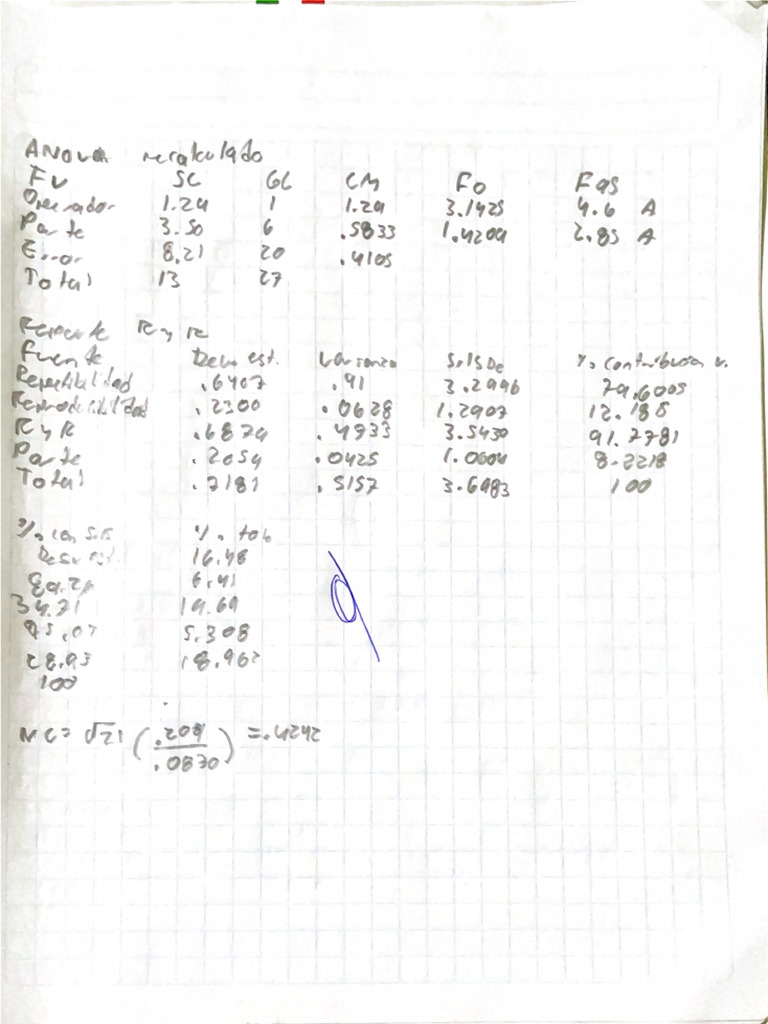 ANOVA recalculado
FV SC GL CM Fo Fas
Operador 1.29 1 1.29 3.1425 4.6 A
Parte 3.50 6 .5833 1.4209 2.85 A
Error 8.21 20 .4105
Total 13 27
Reporte R y R
Fuente Desv. est. Varianza 5.15De % contribucion v.
Repetibilidad .6407 .41 3.2996 79.6005
Reproducibilidad .2300 .0628 1.2907 12.185
R y R .6879 .4733 3.5430 91.7781
Parte .2059 .0425 1.0604 8.2218
Total .7181 .5157 3.6983 100
% con 5.15 % tol
Desv est. 16.48
6.41
34.71 19.69
95.07 5.308
28.93 18.962
100
NC= √21 (.209/.0870) =.4242